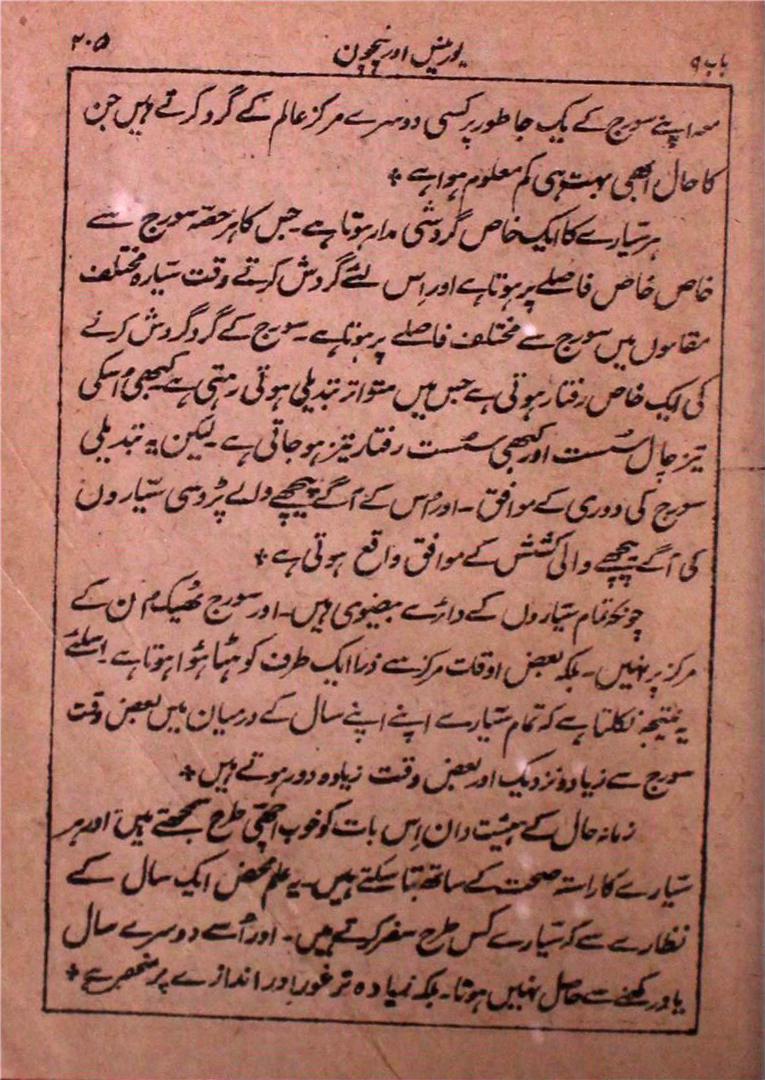 باب ۹ یورینس اور نپچون ۲۰۵
معہ اپنے سورج کے یک جا طور پر کسی دوسرے مرکز عالم کے گرد کرتے ہیں جن
کا حال ابھی بہت ہی کم معلوم ہوا ہے *
ہر سیارے کا ایک خاص گردشی مدار ہوتا ہے۔ جس کا ہر حصہ سورج سے
خاص خاص فاصلے پر ہوتا ہے اور اِس لئے گردش کرتے وقت سیارہ مختلف
مقاموں میں سورج سے مختلف فاصلے پر ہوتا ہے۔ سورج کے گرد گردش کرنے
کی ایک خاص رفتار ہوتی ہے جس میں متواتر تبدیلی ہوتی رہتی ہے کبھی اُسکی
تیز چال سُست اور کبھی سُست رفتار تیز ہو جاتی ہے۔ لیکن یہ تبدیلی
سورج کی دوری کے موافق۔ اور اُس کے آگے پیچھے والے پڑوسی سیاروں
کی آگے پیچھے والی کشش کے موافق واقع ہوتی ہے *
چونکہ تمام سیاروں کے دائرے بیضوی ہیں۔ اور سورج ٹھیک اُن کے
مرکز پر نہیں۔ بلکہ بعض اوقات مرکز سے ذرا ایک طرف کو ہٹا ہُوا ہوتا ہے۔ اسلئے
یہ نتیجہ نکلتا ہے کہ تمام سیارے اپنے اپنے سال کے درمیان میں بعض وقت
سورج سے زیادہ نزدیک اور بعض وقت زیادہ دور ہوتے ہیں *
زمانہ حال کے ہیئت دان اِس بات کو خوب اچھی طرح سمجھتے ہیں اور ہر
سیارے کا راستہ صحت کے ساتھ بتا سکتے ہیں۔ یہ علم محض ایک سال کے
نظارے سے کہ سیارے کس طرح سفر کرتے ہیں۔ اور اُسے دوسرے سال
یاد رکھنے سے حاصل نہیں ہوتا۔ بلکہ زیادہ تر غور اور اندازے پر منحصر ہے *